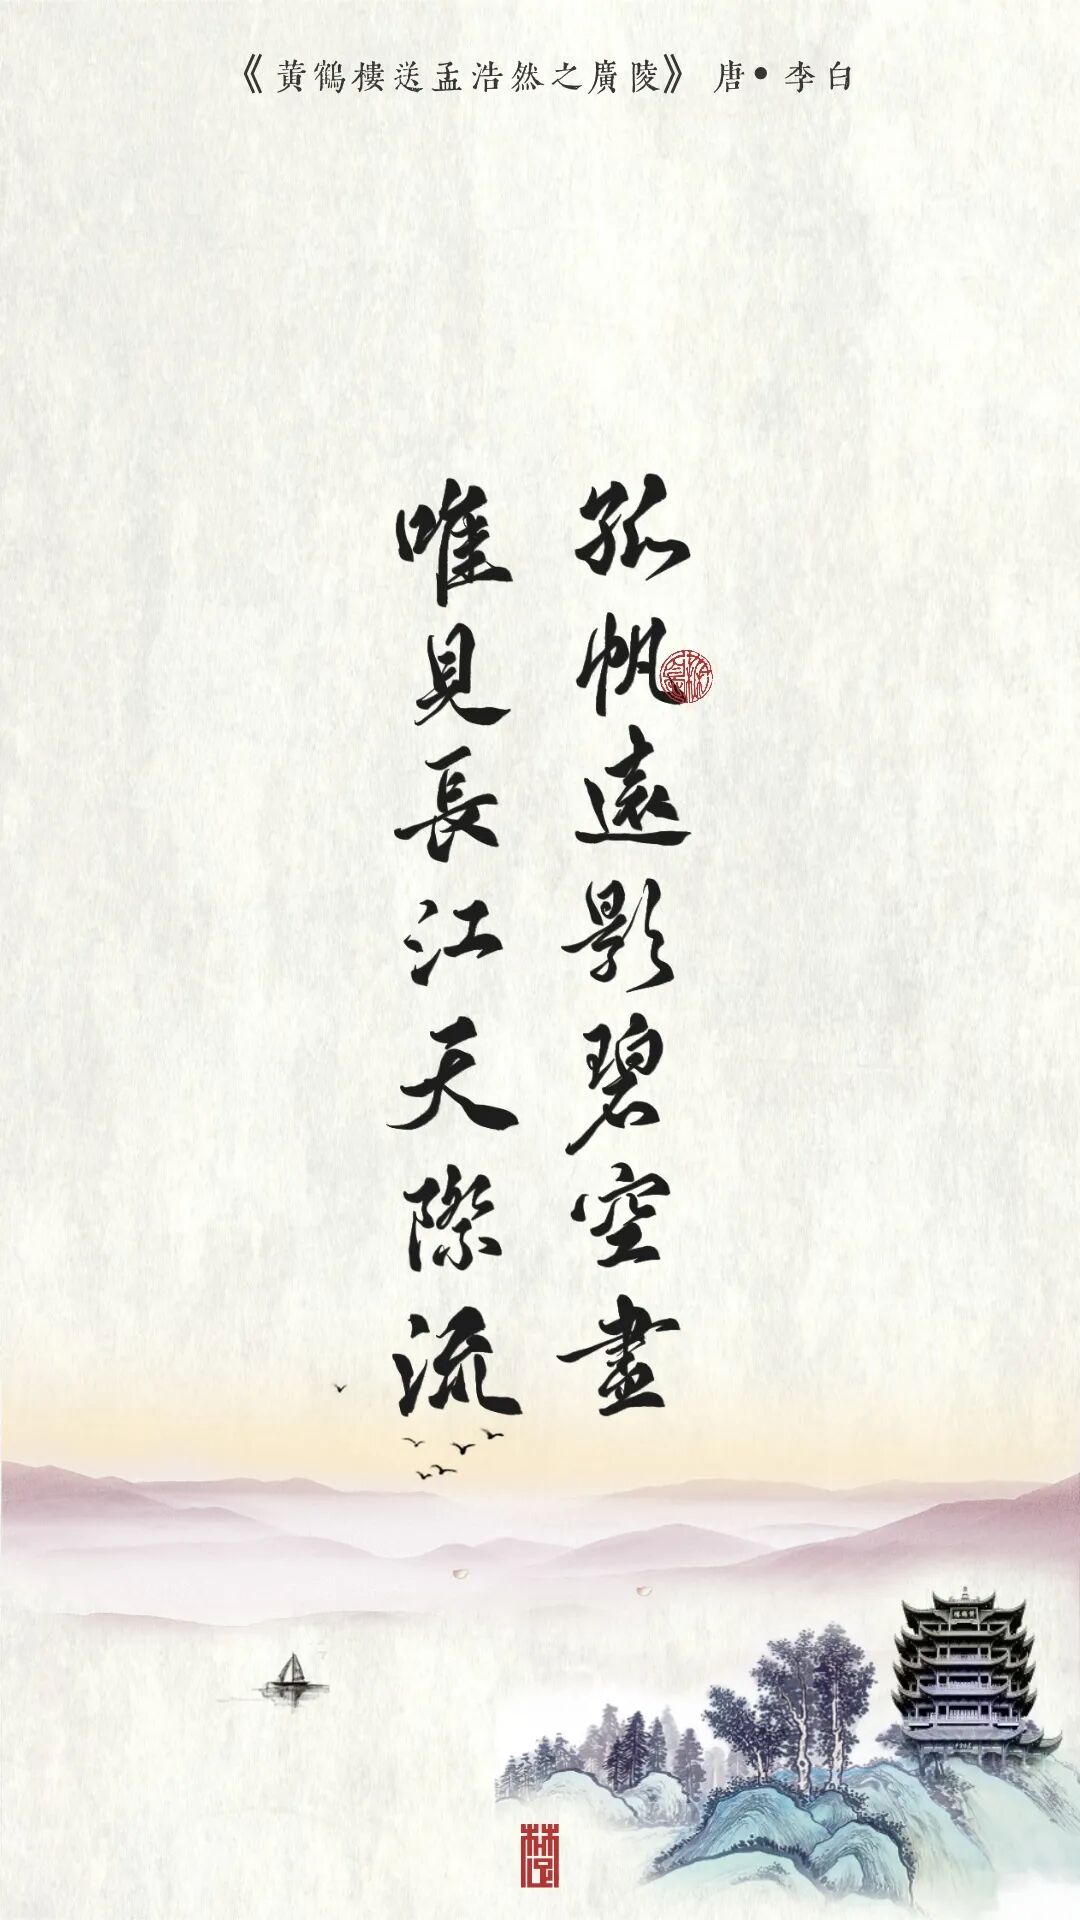 《黃鶴樓送孟浩然之廣陵》唐•李白
孤帆遠影碧空盡
唯見長江天際流